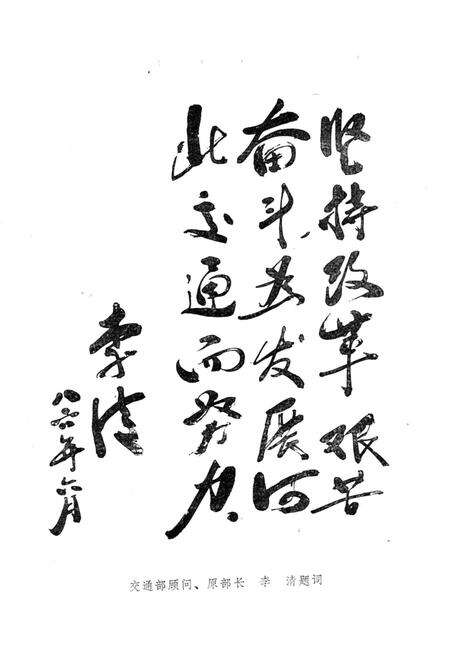 坚持改革艰苦
奋斗,为发展河
北交通而努力。
李清
八六年六月
交通部顾问、原部长 李 清题词